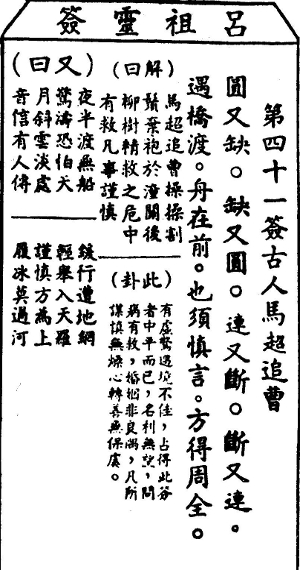 呂祖靈簽
第四十一簽古人馬超追曹
圓又缺。缺又圓。連又斷。斷又連。
遇橋渡。舟在前。也須慎言。方得周全。
(解曰)
馬超追曹操操割
鬚棄袍於潼關後
柳樹精救之厄中
有救凡事謹慎
(此卦)
有虛驚遇境不佳,占得此簽
者中平而已,名利無望,問
病有救,婚姻非良偶,凡所
謀慎無燥心轉善無保虞。
(又曰)
夜半渡無船
驚濤恐怕天
月斜雲淡處
音信有人傳
緩行遭地網
輕舉入天羅
謹慎方為上
履冰莫過河